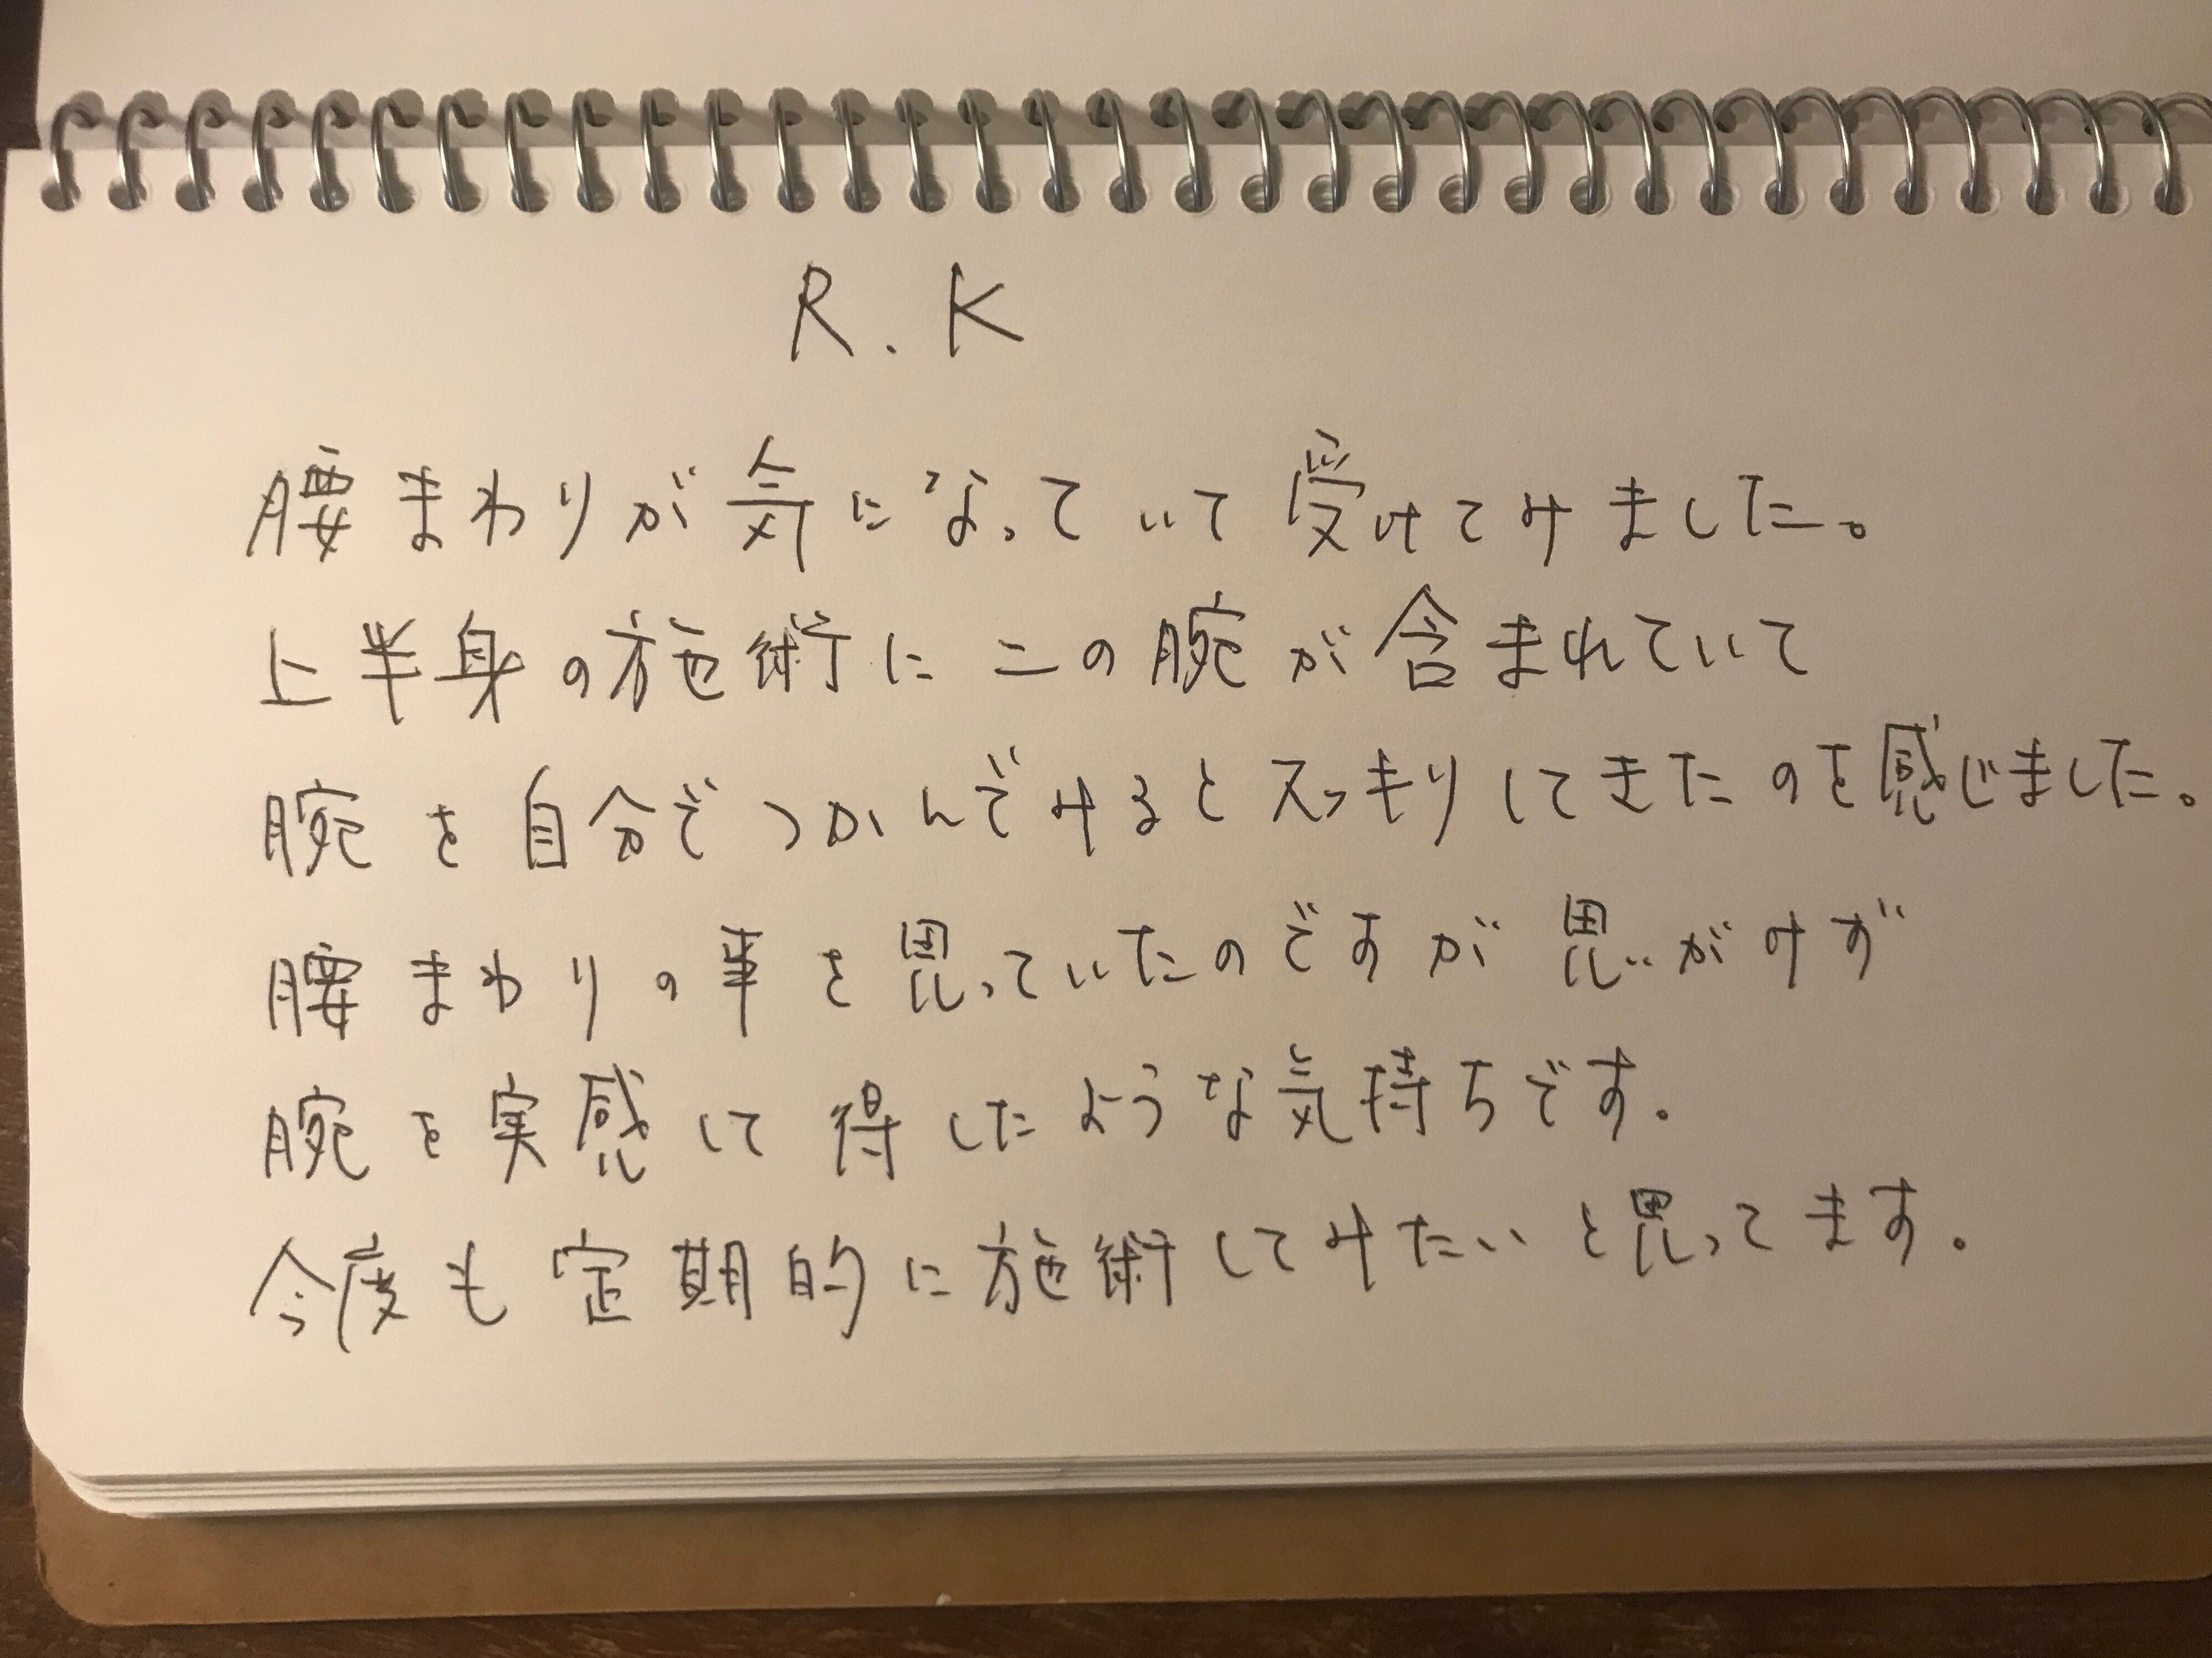 R.K
腰まわりが気になっていて受けてみました。
上半身の施術に二の腕が含まれていて
腕を自分でつかんでみるとスッキリしてきたのを感じました。
腰まわりの事を思っていたのですが思いがけず
腕を実感して得したような気持ちです。
今度も定期的に施術してみたいと思ってます。